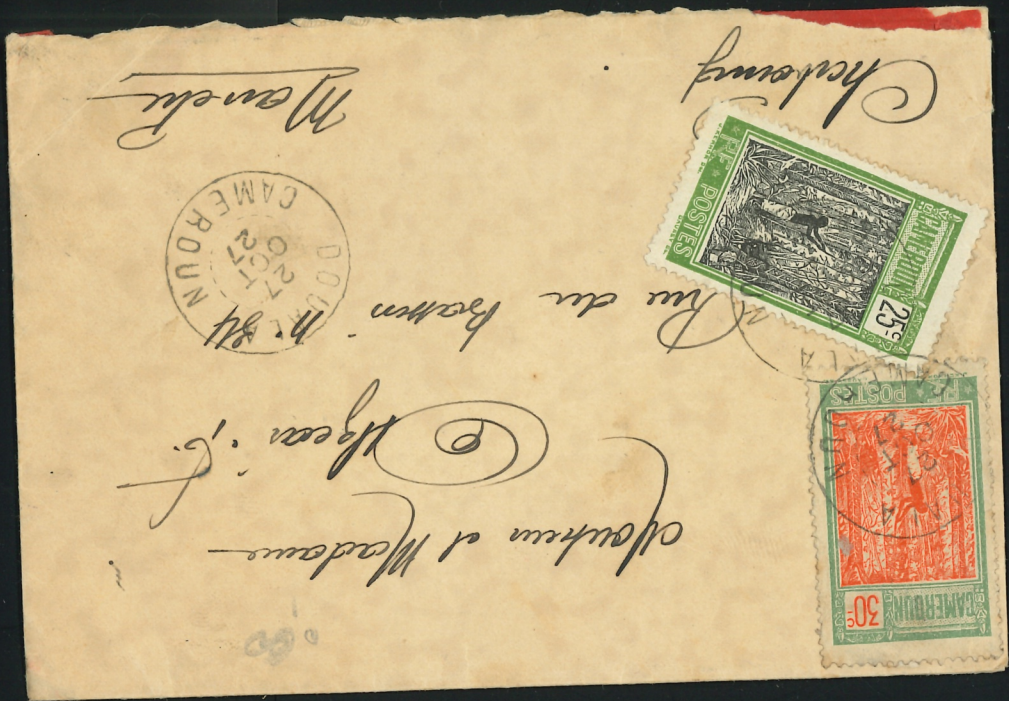 Monsieur et Madame
Rue du Bassin n° 84
Cherbourg
Manche
DOUALA
27
OCT
27
CAMEROUN
CAMEROUN
25c
RF POSTES
CAMEROUN
30c
RF POSTES
DOUALA
CAMEROUN